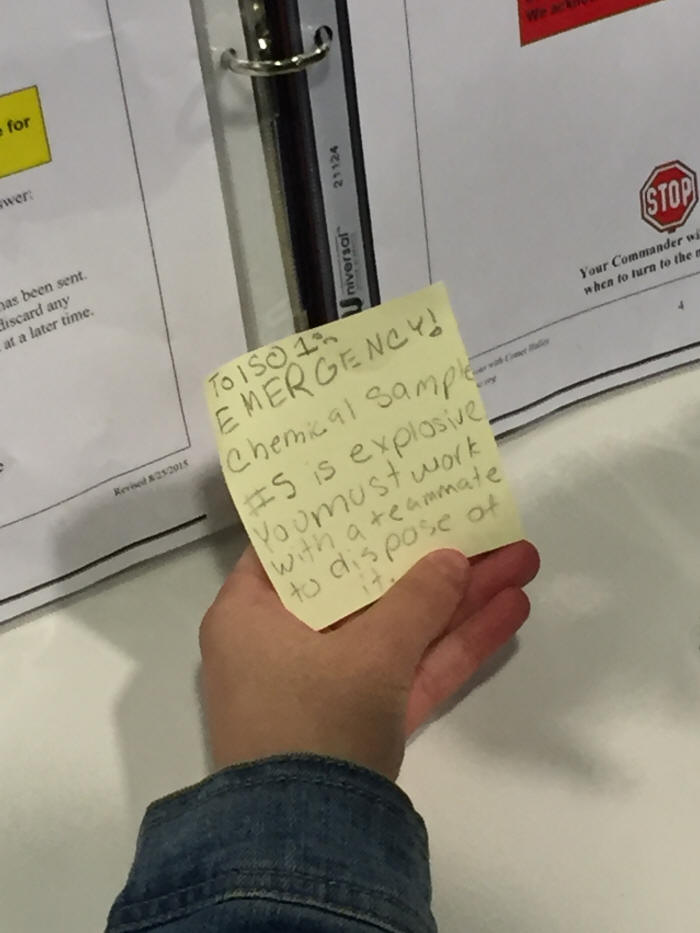 for
swer:
has been sent.
discard any
at a later time.
Revised 8/25/2015
21124
Universal
We
STOP
Your Commander
when to turn to the
4
with Comet Halley
.org
To ISO 1:
EMERGENCY!
Chemical Sample
#5 is explosive
You must work
with a teammate
to dispose of
it.